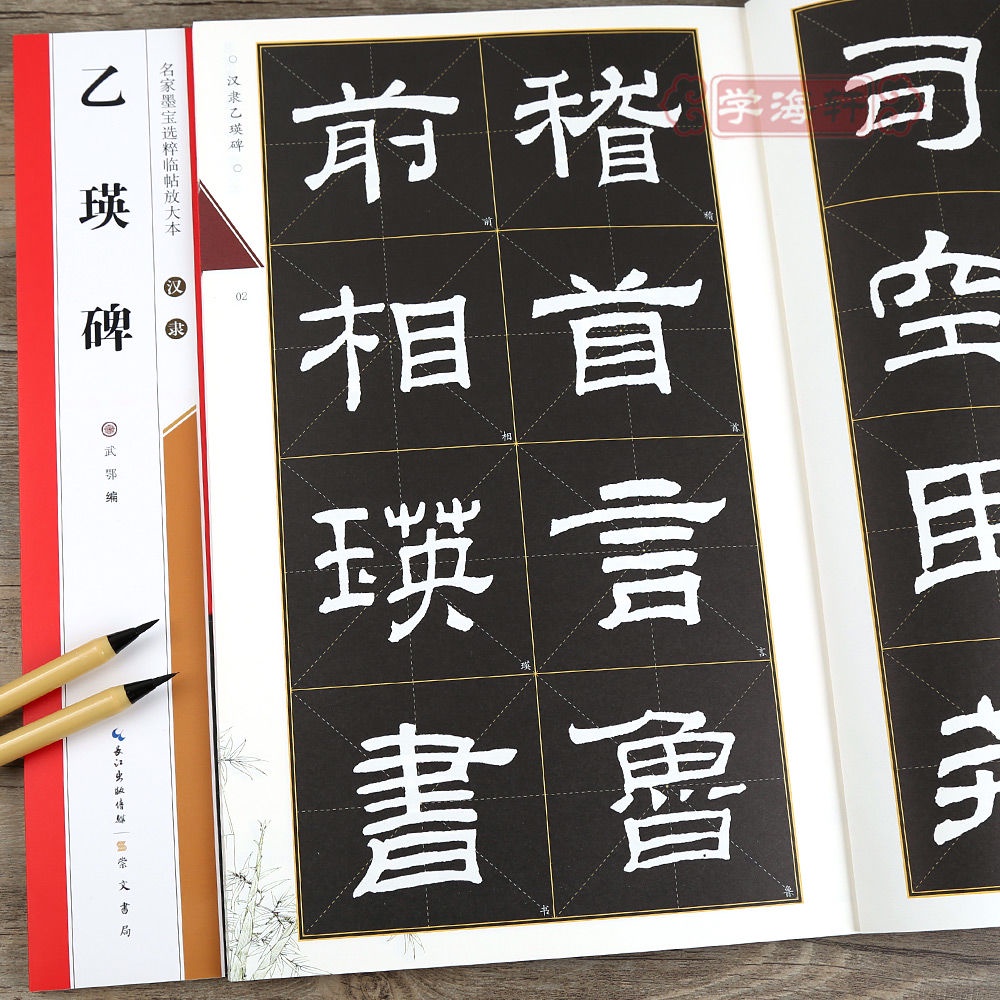 名家墨宝选粹临帖放大本
汉隶
乙瑛碑
武鄂编
长江出版传媒
崇文书局
汉隶乙瑛碑
02
司空
稽首言魯
稽
首
言
鲁
前相瑛書
前
相
瑛
书
学海轩